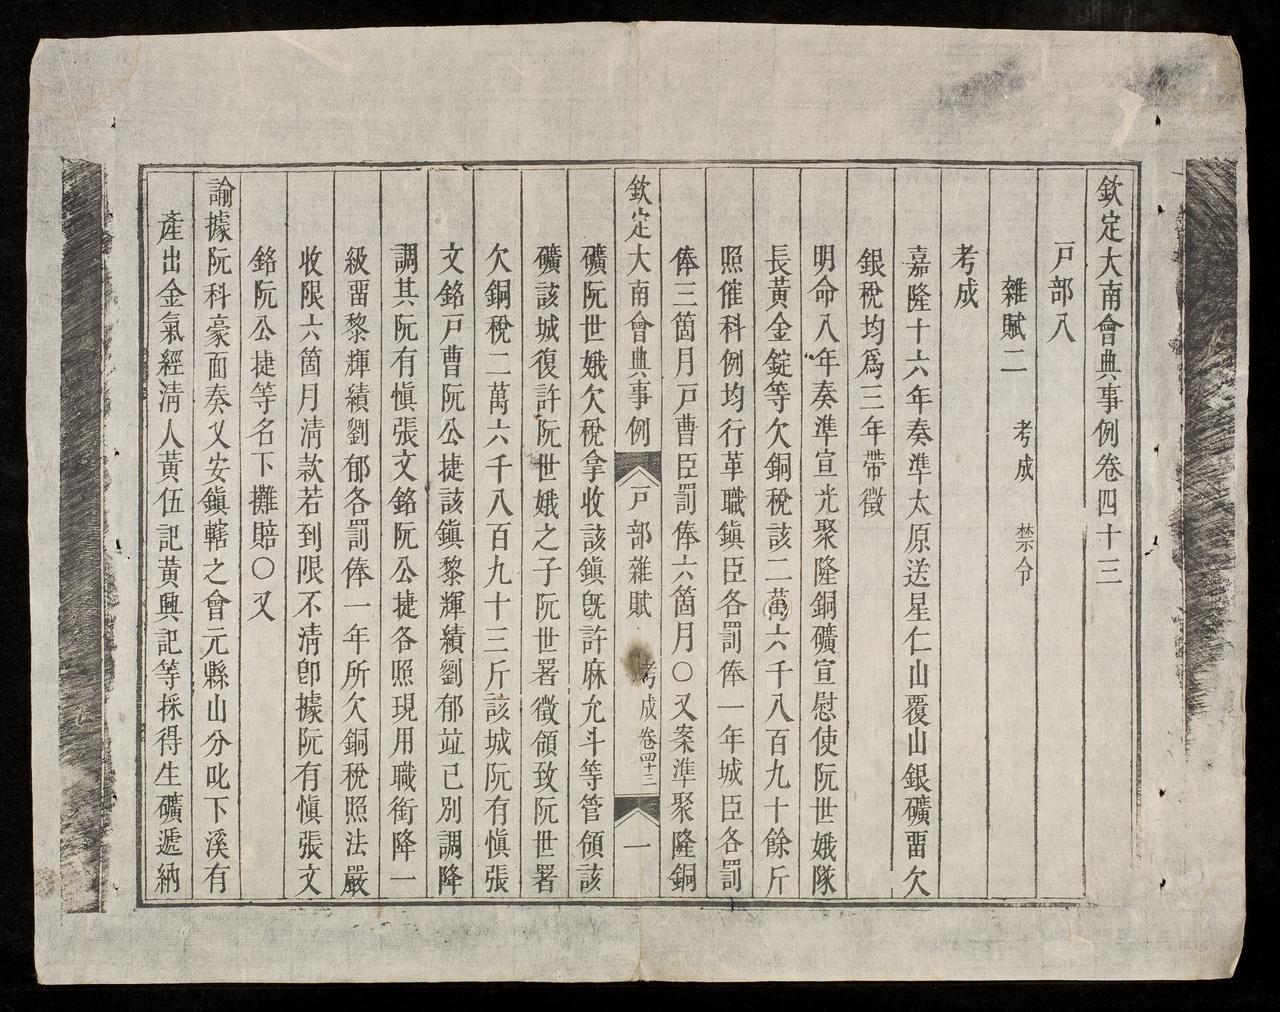 欽定大南會典事例卷四十三
戸部八
雜賦二　考成　禁令
考成
嘉隆十六年奏準太原送星仁山覆山銀礦畱欠
銀稅均爲三年帶徵
明命八年奏準宣光聚隆銅礦宣慰使阮世娥隊
長黃金錠等欠銅稅該二萬六千八百九十餘斤
照催科例均行革職鎭臣各罰俸一年城臣各罰
俸三箇月戸曹臣罰俸六箇月○又案準聚隆銅
欽定大南會典事例　戸部雜賦　考成卷四十三　一
礦阮世娥欠稅拿收該鎭旣許麻允斗等管領該
礦該城復許阮世娥之子阮世署徵領致阮世署
欠銅稅二萬六千八百九十三斤該城阮有愼張
文銘戸曹阮公捷該鎭黎輝績劉郁竝已別調降
調其阮有愼張文銘阮公捷各照現用職銜降一
級畱黎輝績劉郁各罰俸一年所欠銅稅照法嚴
收限六箇月淸款若到限不淸卽據阮有愼張文
銘阮公捷等名下攤賠○又
諭據阮科豪面奏乂安鎭轄之會元縣山分叱下溪有
產出金氣經淸人黃伍記黃興記等採得生礦遞納